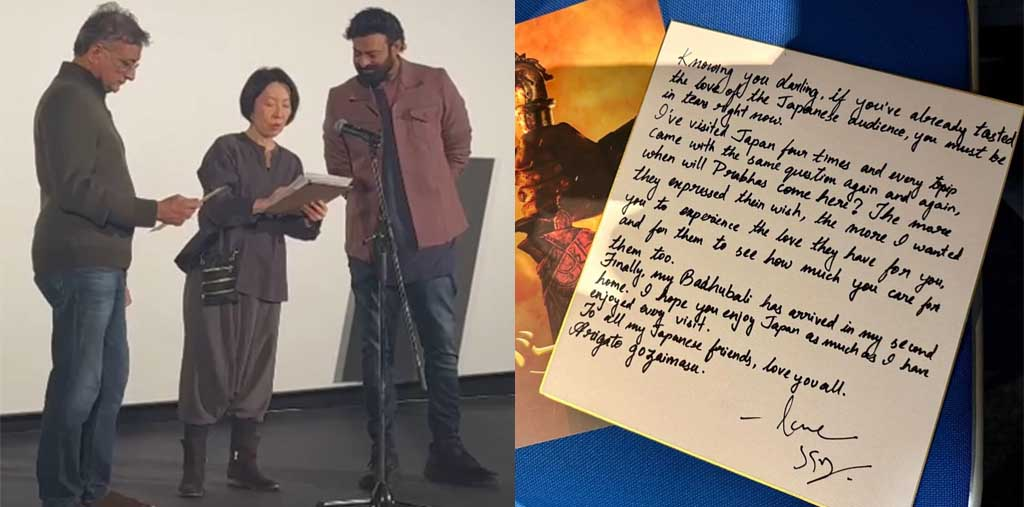 Knowing you darling, if you've already tasted
the love of the Japanese audience, you must be
in tears right now.
I've visited Japan four times and every trip
came with the same question again and again,
when will Prabhas come here? The more
they expressed their wish, the more I wanted
you to experience the love they have for you,
and for them to see how much you care for
them too.
Finally, my Badhubali has arrived in my second
home. I hope you enjoy Japan as much as I have
enjoyed every visit.
To all my Japanese friends, love you all.
Arigato gozaimasu.
- love